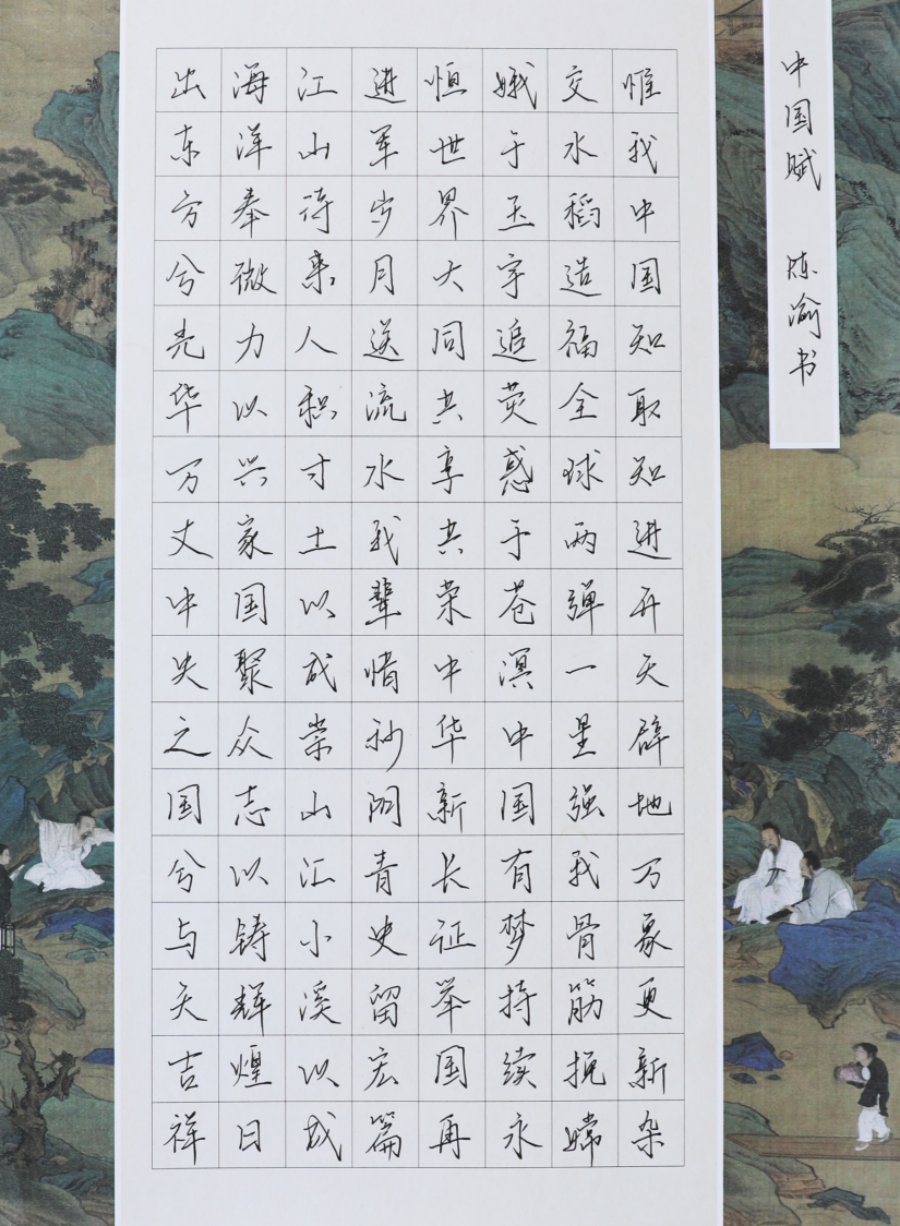 中国赋 陈渝书
惟我中国知取知进开天辟地万象更新杂
交水稻造福全球两弹一星强我骨筋挽嫦
娥于玉宇追荧惑于苍溟中国有梦持续永
恒世界大同共享共荣中华新长征举国再
进军岁月送流水我辈惜秒青史留宏篇
江山待来人积寸土以成崇山汇小溪以成
海洋奉微力以兴家国聚众志以铸辉煌日
出东方兮光华万丈中央之国兮与天吉祥